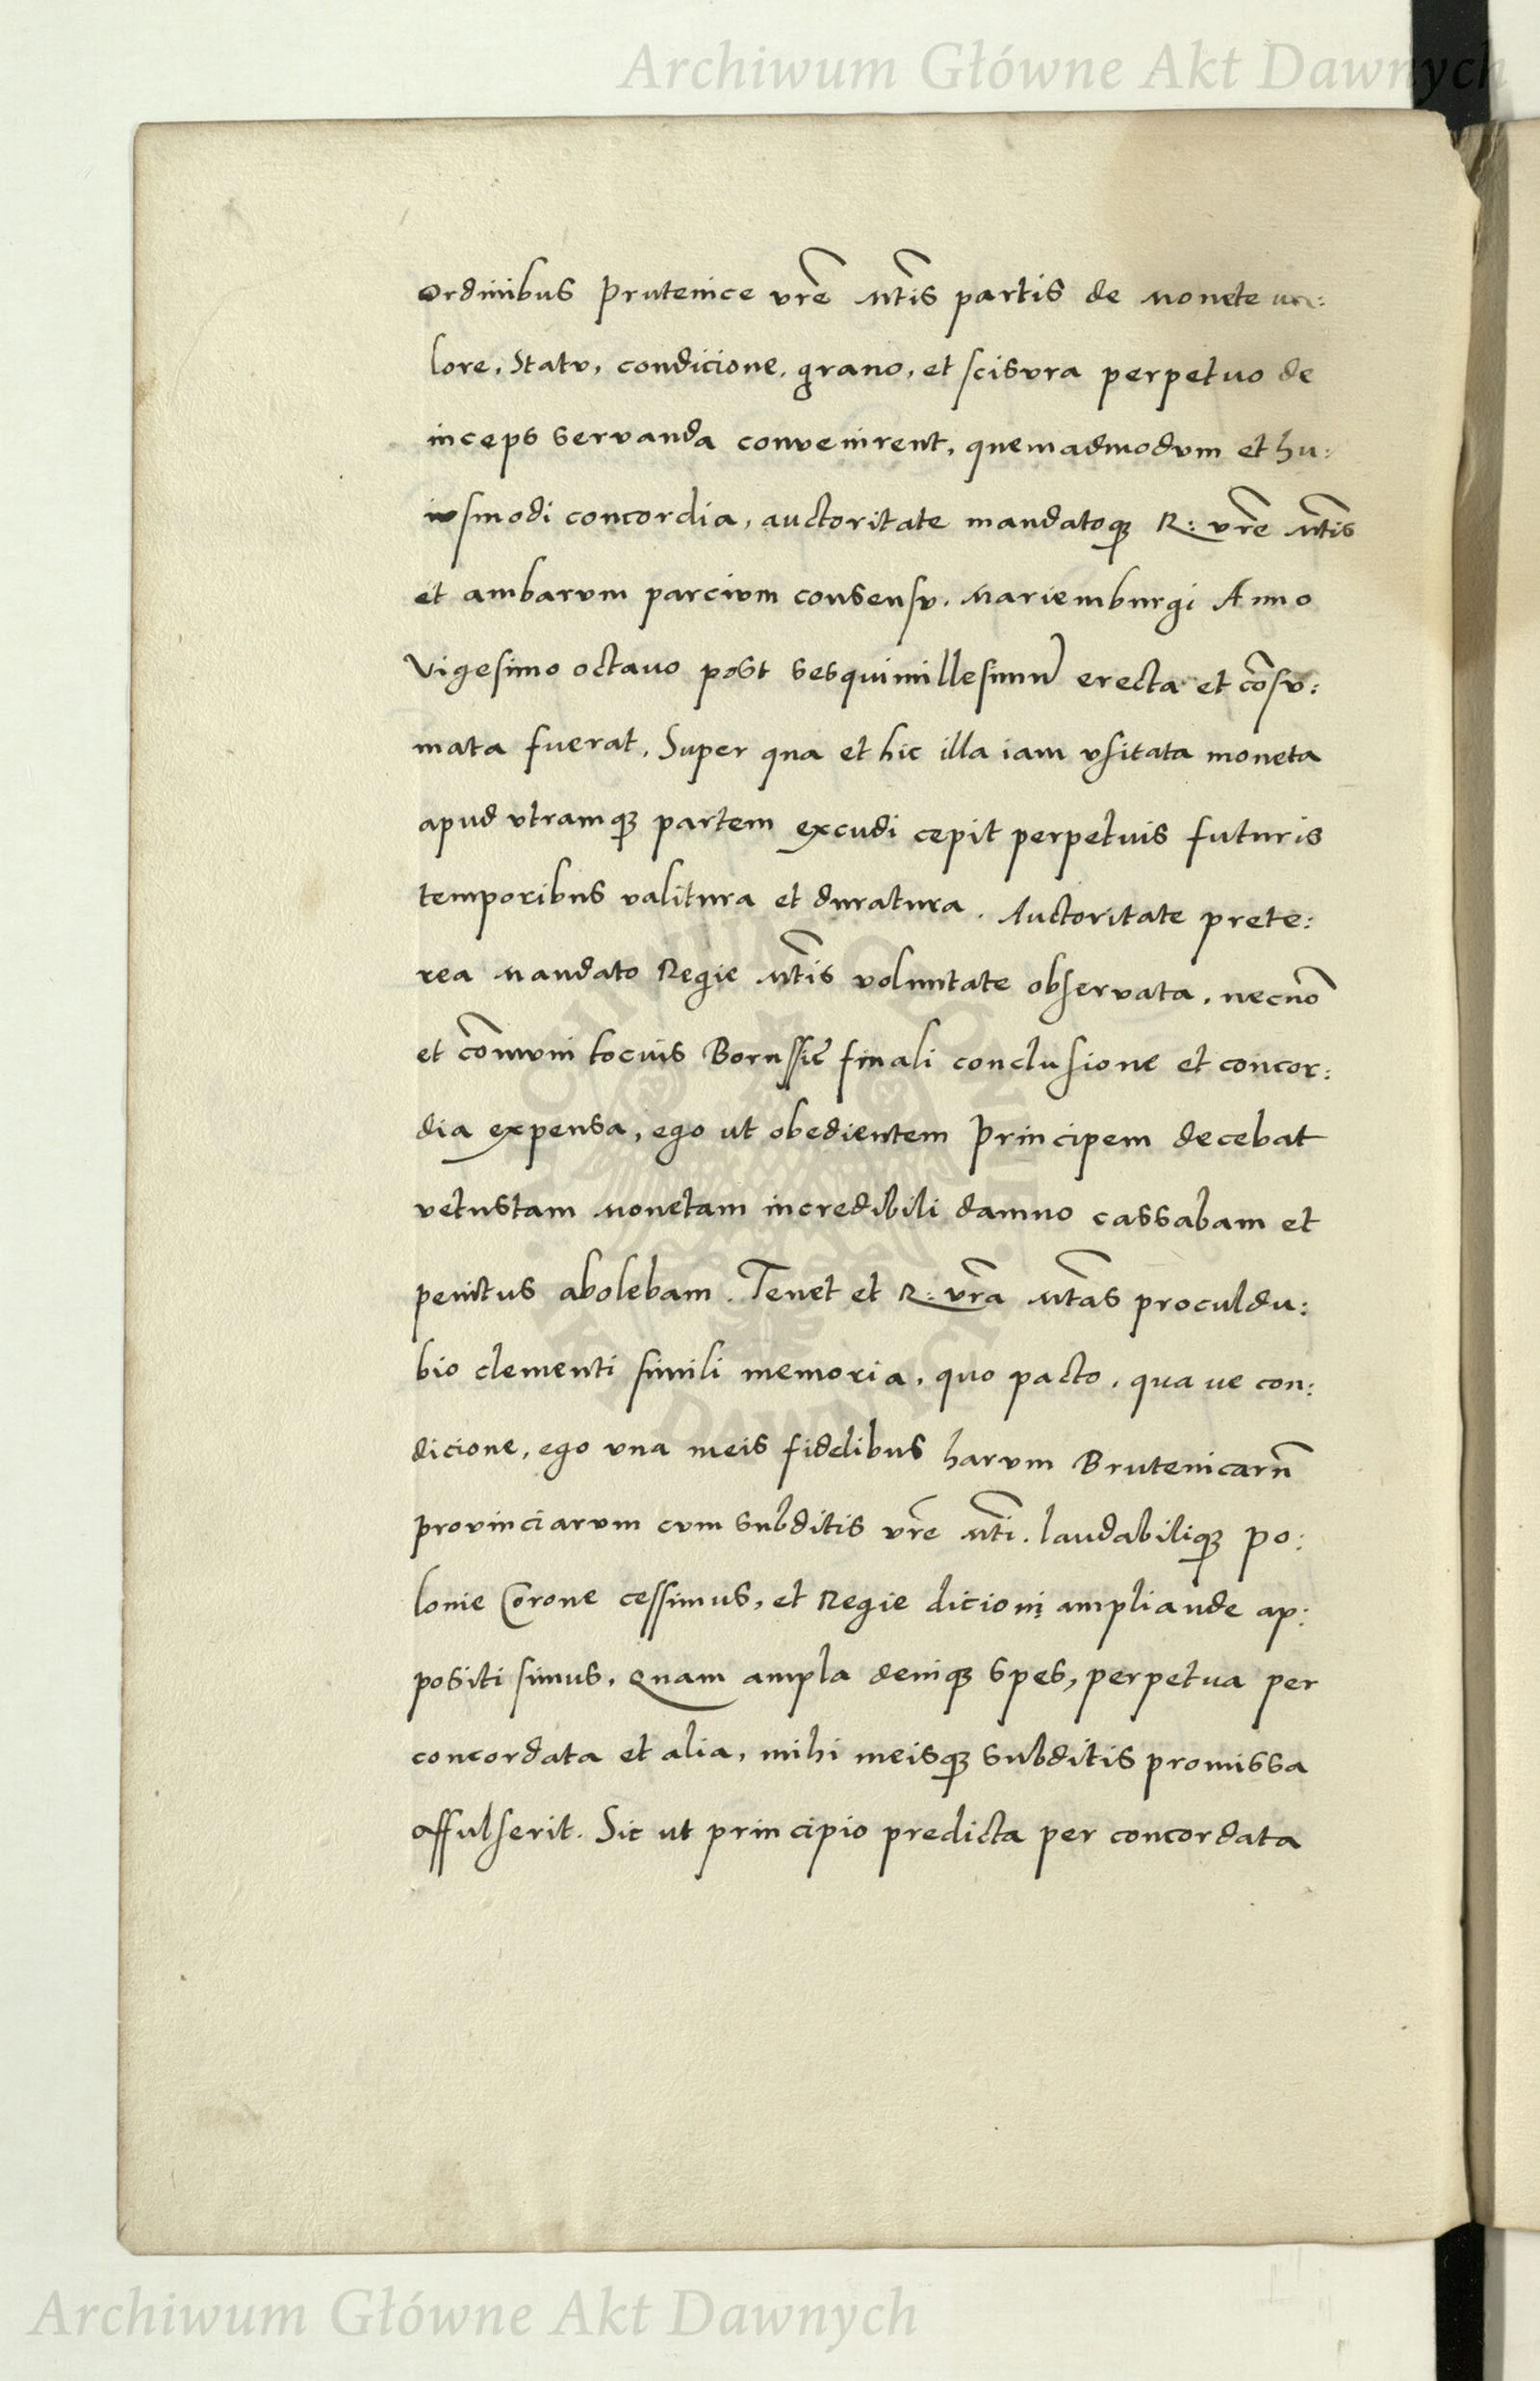 Archiwum Główne Akt Dawnych
Ordinibus Prutenice vr̃e Mt̃is partis de Monete va:
lore, Statv, condicione, grano, et scisvra perpetuo de
inceps servanda convenirent, quemadmodvm et hu:
ivsmodi concordia, auctoritate mandatoqꝫ R: vr̃e Mt̃is
et ambarvm parcivm consensv. Mariemburgi Anno
Vigesimo octauo post sesquimillesimũ erecta et cõsv:
mata fuerat. Super qua et hic illa iam vsitata moneta
apud vtramqꝫ partem excudi cepit perpetuis futuris
temporibus valitura et duratura. Auctoritate prete:
rea Mandato Regie Mt̃is voluntate observata, necnõ
et cõmvni tocius Borussie finali conclusione et concor:
dia expensa, ego ut obedientem Principem decebat
vetustam Monetam incredibili damno cassabam et
penitus abolebam. Tenet et R: vr̃a Mt̃as proculdu:
bio clementi simili memoria, quo pacto, qua ue con:
dicione, ego vna meis fidelibus harvm Brutenicarũ
provinciarvm cvm subditis vr̃e Mt̃i. laudabiliqꝫ Po:
lonie Corone cessimus, et Regie dicioni ampliande ap:
positi simus. Quam ampla deniqꝫ spes, perpetua per
concordata et alia, mihi meisqꝫ subditis promissa
affulserit. Sic ut principio predicta per concordata
ARCHIWUM GŁÓWNE AKT DAWNYCH
Archiwum Główne Akt Dawnych